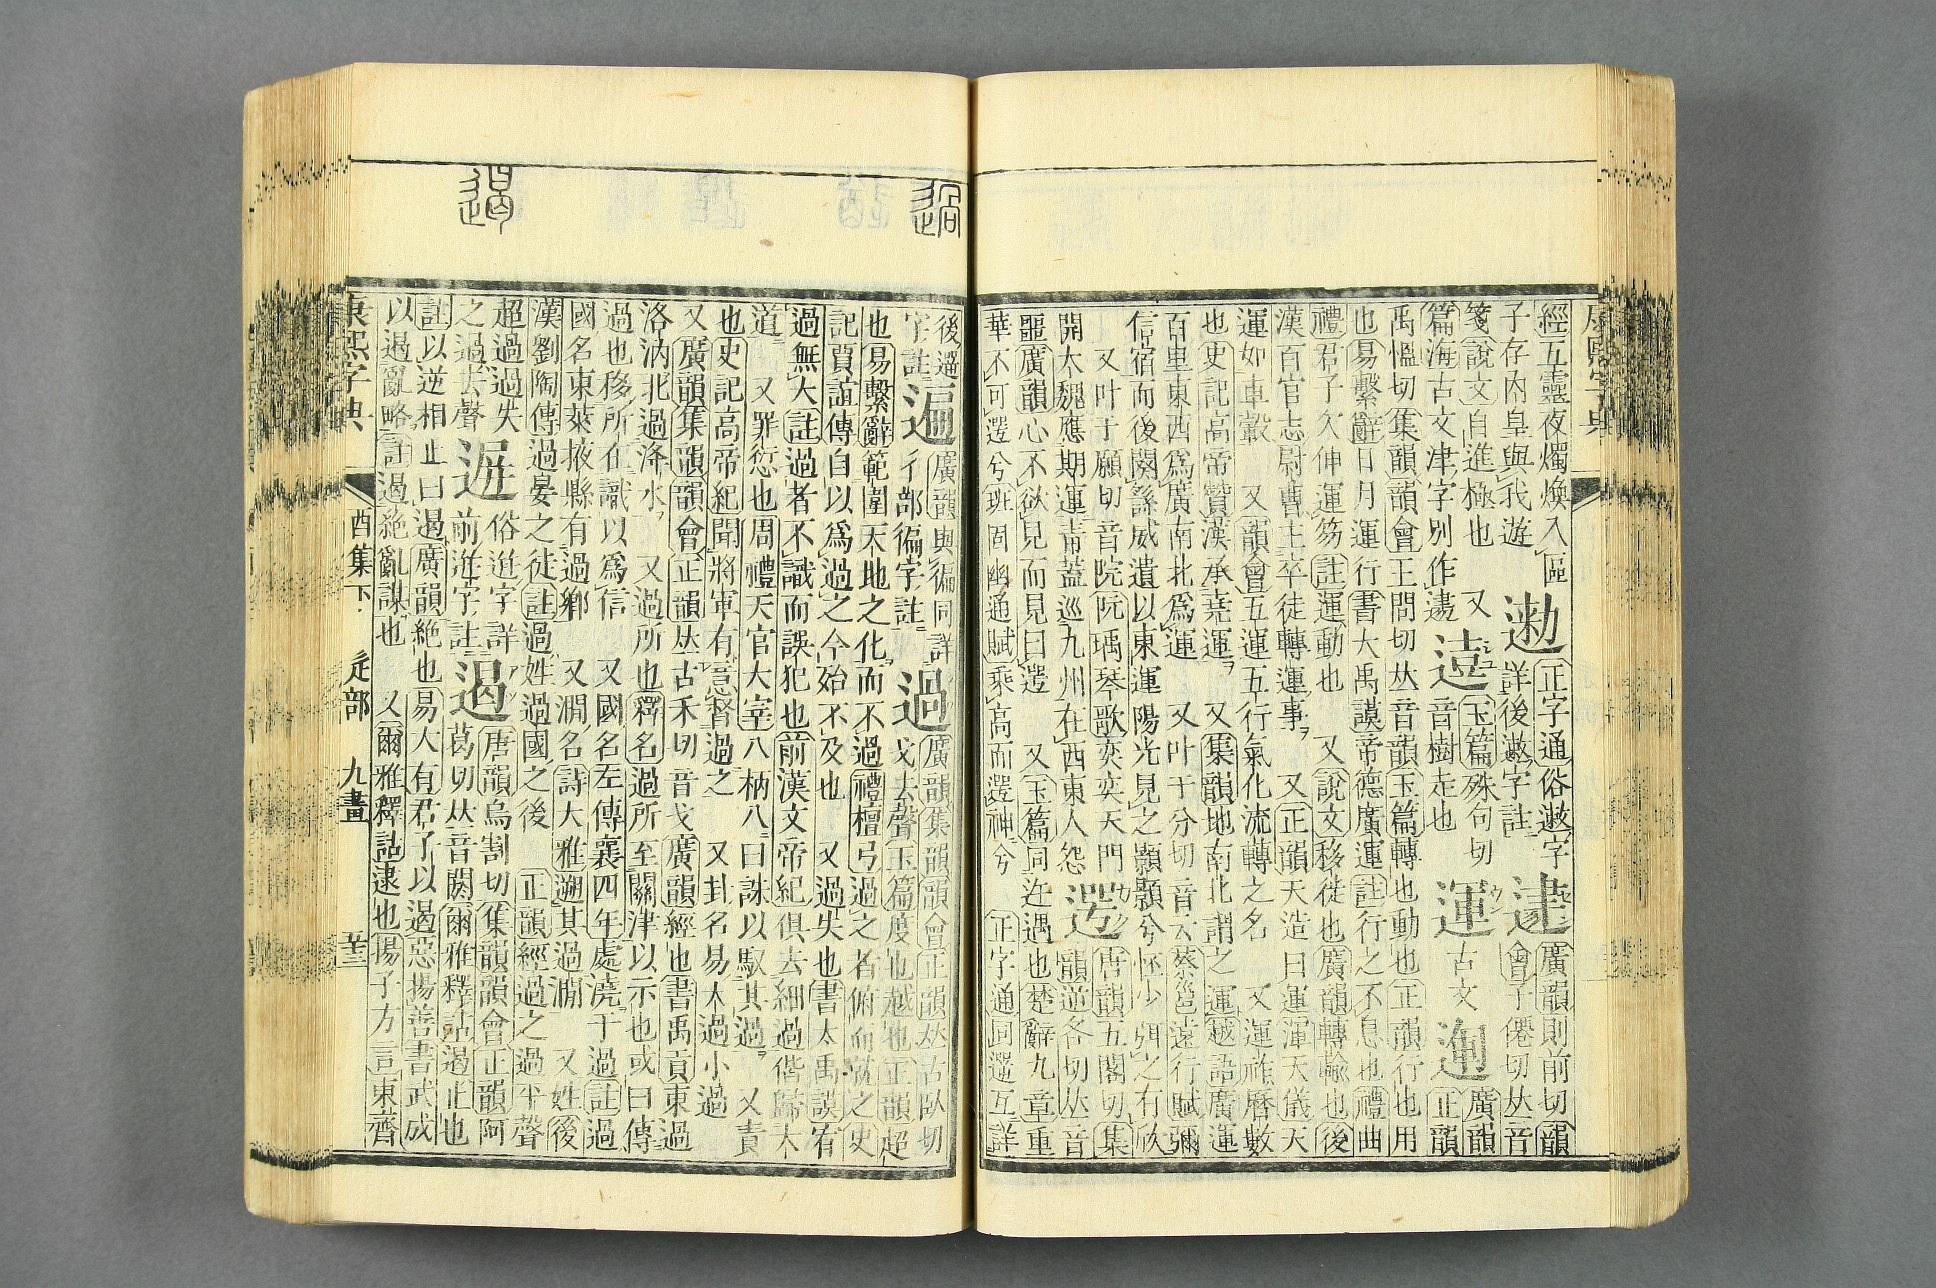 康熙字典
經五靈夜燭煥入區
子存內皇與我遊
遬
正字通俗遫字
詳後遫字註
達
廣韻則前切韻
會子僊切𠀤音
箋說文自進極也 又
篇海古文津字別作
玉篇殊句切
音樹走也
運
古文
廣韻
正韻
禹慍切集韻韻會王問切𠀤音韻玉篇轉也動也正韻行也用
也易繫辭日月運行書大禹謨帝德廣運註行之不息也禮曲
禮君子欠伸運笏註運動也 又說文移徙也廣韻轉輸也後
漢百官志尉曹主卒徒轉運事 又正韻天造曰運渾天儀天
運如車轂 又韻會五運五行氣化流轉之名 又運祚曆數
也史記高帝贊漢承堯運 又集韻地南北謂之運越語廣運
百里東西爲廣南北爲運 又叶于分切音云蔡邕遠行賦彌
信宿而後闋繇威遺以東運陽光見之顥顥兮怀少弭之有欣
又叶于願切音院阮瑀琴歌奕奕天門
開大魏應期運青蓋巡九州在西東人怨
遌
唐韻五閣切集
韻逆各切𠀤音
噩廣韻心不欲見而見曰遌 又玉篇同迕遇也楚辭九章重
華不可遌兮班固幽通賦乘高而遌神兮 正字通同遻互詳
過
遏
後遻
字註
遍
廣韻與徧同詳
彳部徧字註
過
廣韻集韻韻會正韻𠀤古臥切
戈去聲玉篇度也越也正韻超
也易繫辭範圍天地之化而不過禮檀弓過之者俯而就之史
記賈誼傳自以爲過之今始不及也 又過失也書大禹謨宥
過無大註過者不識而誤犯也前漢文帝紀俱去細過偕歸大
道 又罪愆也周禮天官大宰八柄八曰誅以馭其過 又責
也史記高帝紀聞將軍有意督過之 又卦名易大過小過
又廣韻集韻韻會正韻𠀤古禾切音戈廣韻經也書禹貢東過
洛汭北過洚水 又過所也釋名過所至關津以示也或曰傳
過也移所在識以爲信 又國名左傳襄四年處澆于過註過
國名東萊掖縣有過鄉 又澗名詩大雅遡其過澗 又姓後
漢劉陶傳過晏之徒註過姓過國之後 正韻經過之過平聲
超過過失
之過去聲
遅
俗迡字詳
前迡字註
遏
唐韻烏割切集韻韻會正韻阿
葛切𠀤音閼爾雅釋詁遏止也
註以逆相止曰遏廣韻絕也易大有君子以遏惡揚善書武成
以遏亂略註遏絕亂謀也 又爾雅釋詁逮也揚子方言東齊
康熙字典
酉集下
辵部
九畫